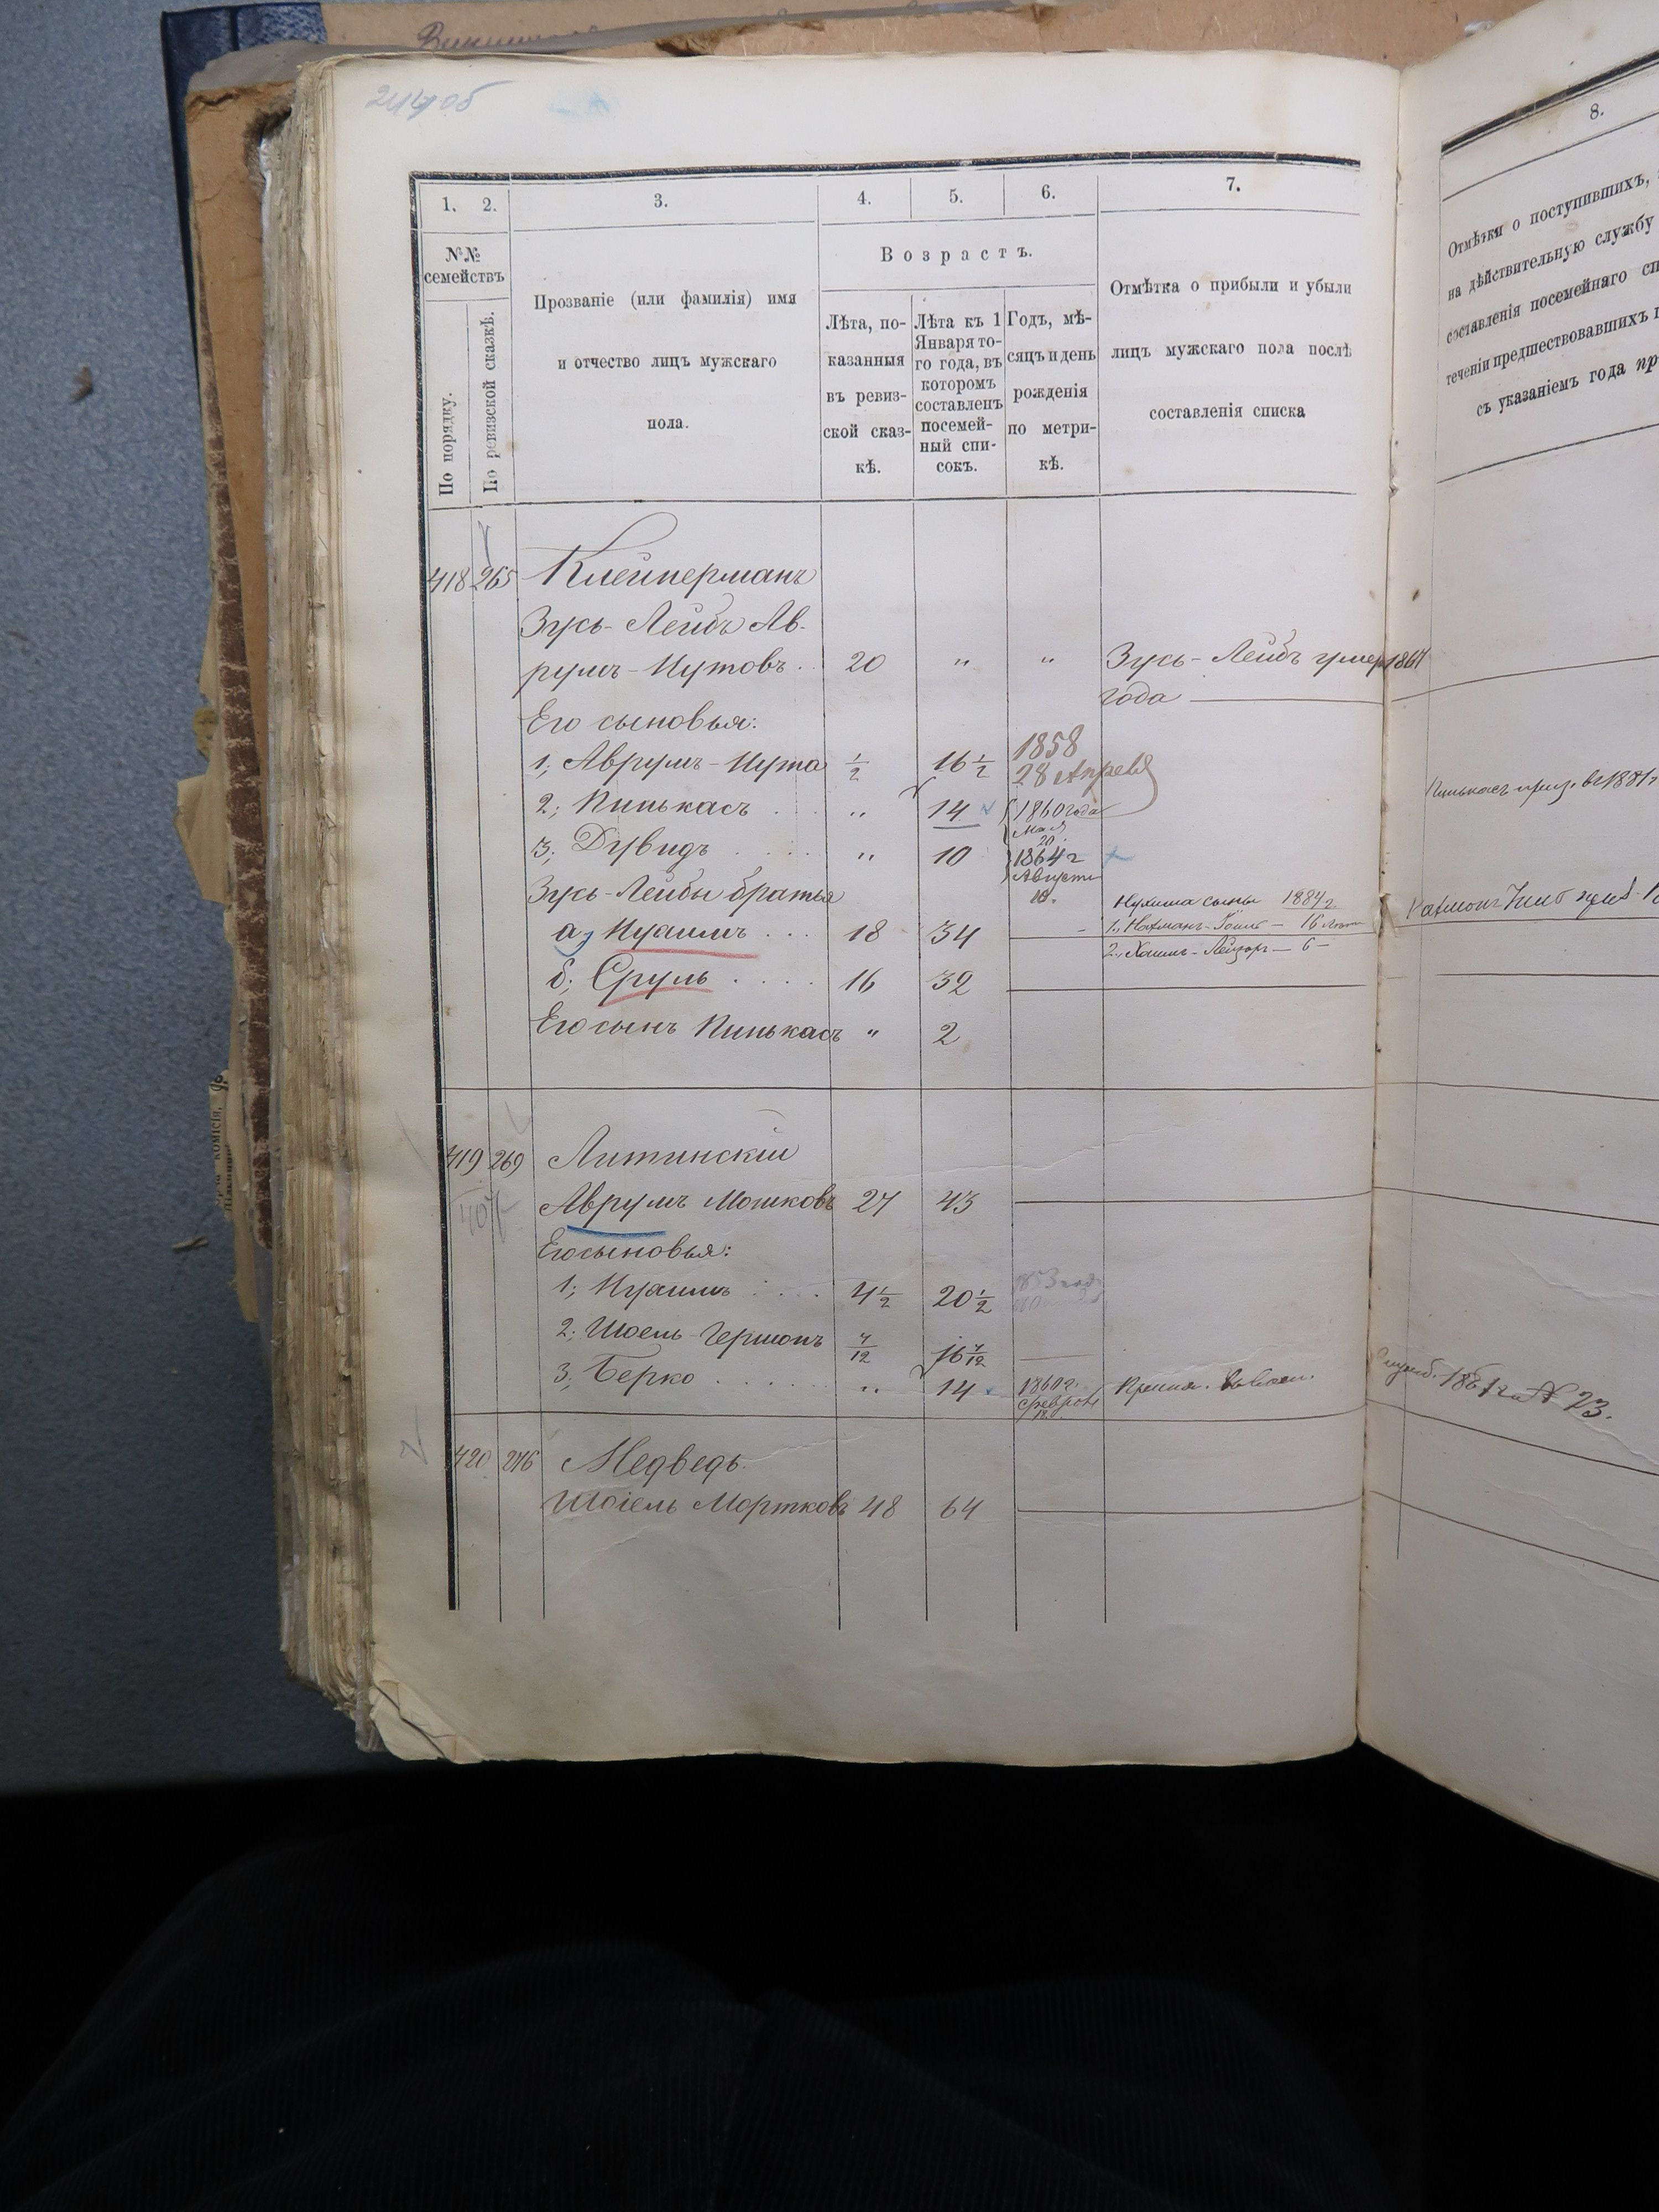 244об
1. 2. 3. 4. 5. 6. 7.
№№ семействъ
По порядку.
По ревизской сказкѣ.
Прозваніе (или фамилія) имя
и отчество лицъ мужскаго
пола.
Возрастъ.
Лѣта, по-
казанныя
въ ревиз-
ской сказ-
кѣ.
Лѣта къ 1
Января то-
го года, въ
которомъ
составленъ
посемей-
ный спи-
сокъ.
Годъ, мѣ-
сяцъ и день
рожденія
по метри-
кѣ.
Отмѣтка о прибыли и убыли
лицъ мужскаго пола послѣ
составленія списка
418 265 Клейнерманъ
Зусь-Лейбъ Ав-
румъ-Нутовъ . . 20 " " Зусь-Лейбъ умеръ 1861
года
Его сыновья:
1; Аврумъ-Нута 1/2 16 1/2 1858 28 Апреля
2; Пинькасъ . . . " 14 1860 года Мая 20.
3; Дувидъ . . . . " 10 1864 г Августа 18.
Зусь-Лейбы братья
а; Нухимъ . . . 18 34
Нухима сыны 1884 г
1., Нахманъ- — 16 лѣтъ
2., Хаимъ-Лейзоръ — 6 —
б; Сруль . . . . 16 32
Его сынъ Пинькасъ " 2
419 269 Литинскій
407
Аврумъ Мошковъ 27 43
Его сыновья:
1; Нухимъ . . . . 4 1/2 20 1/2 1853
2; Шоель-Гершонъ 7/12 16 7/12
3; Берко . . . . . " 14 1860 г. Февраля 18.
420 276 Медведь.
Шоіель Мортковъ 48 64
8.
Отмѣтки о поступившихъ,
на дѣйствительную службу
составленія посемейнаго сп
теченіи предшествовавшихъ
съ указаніемъ года пр
Пинькасъ приз. въ 1881 г
№ 23.